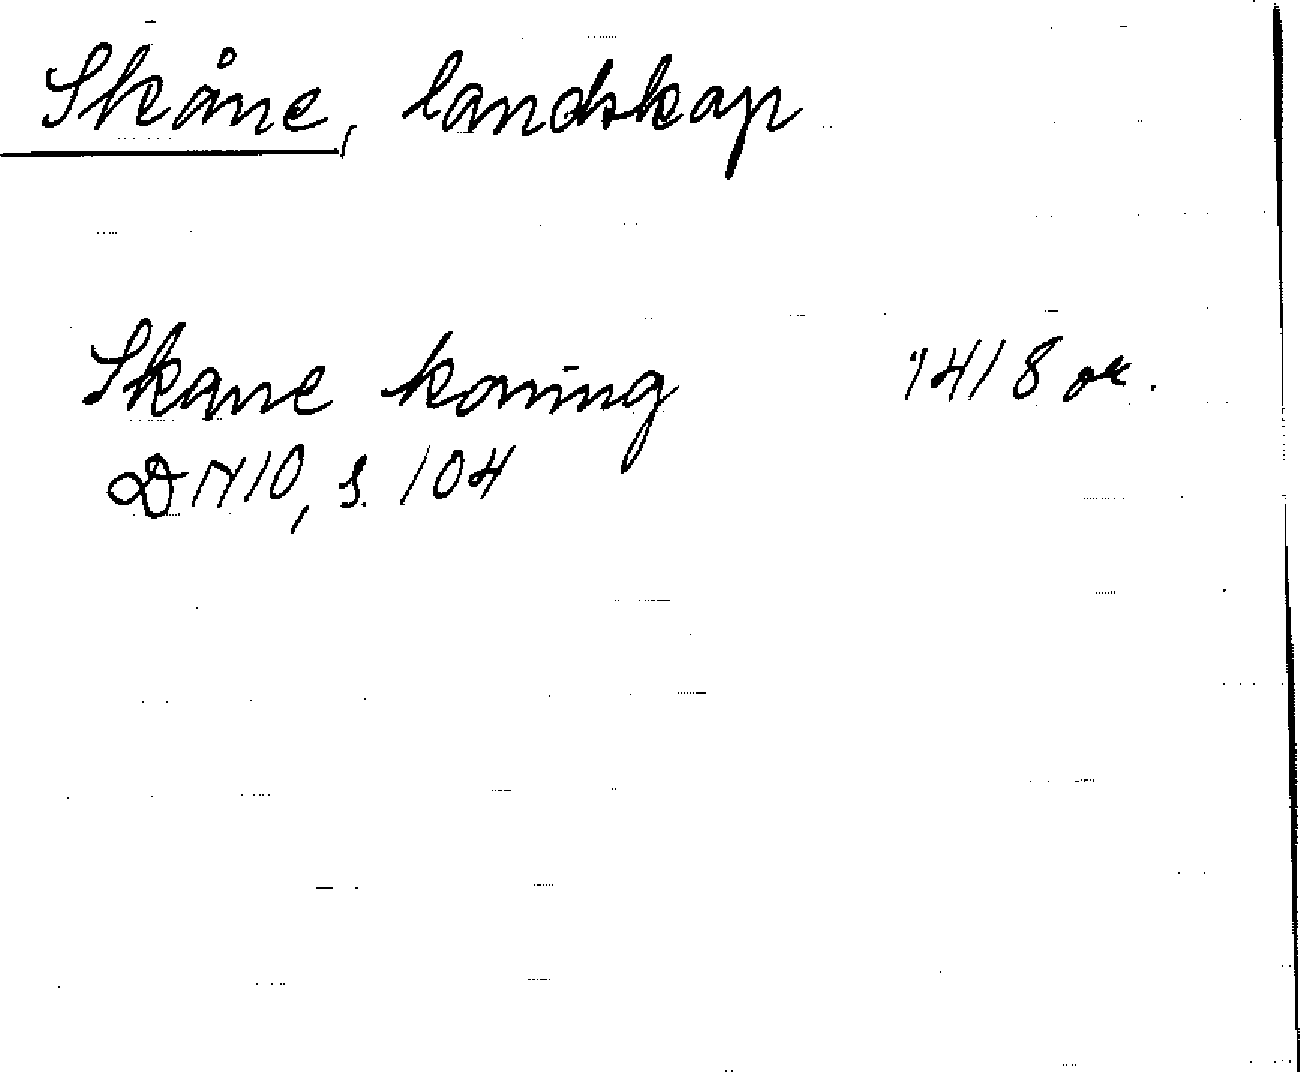 Skåne, landskap
Skane koning 1418 or.
DN 10, s. 104